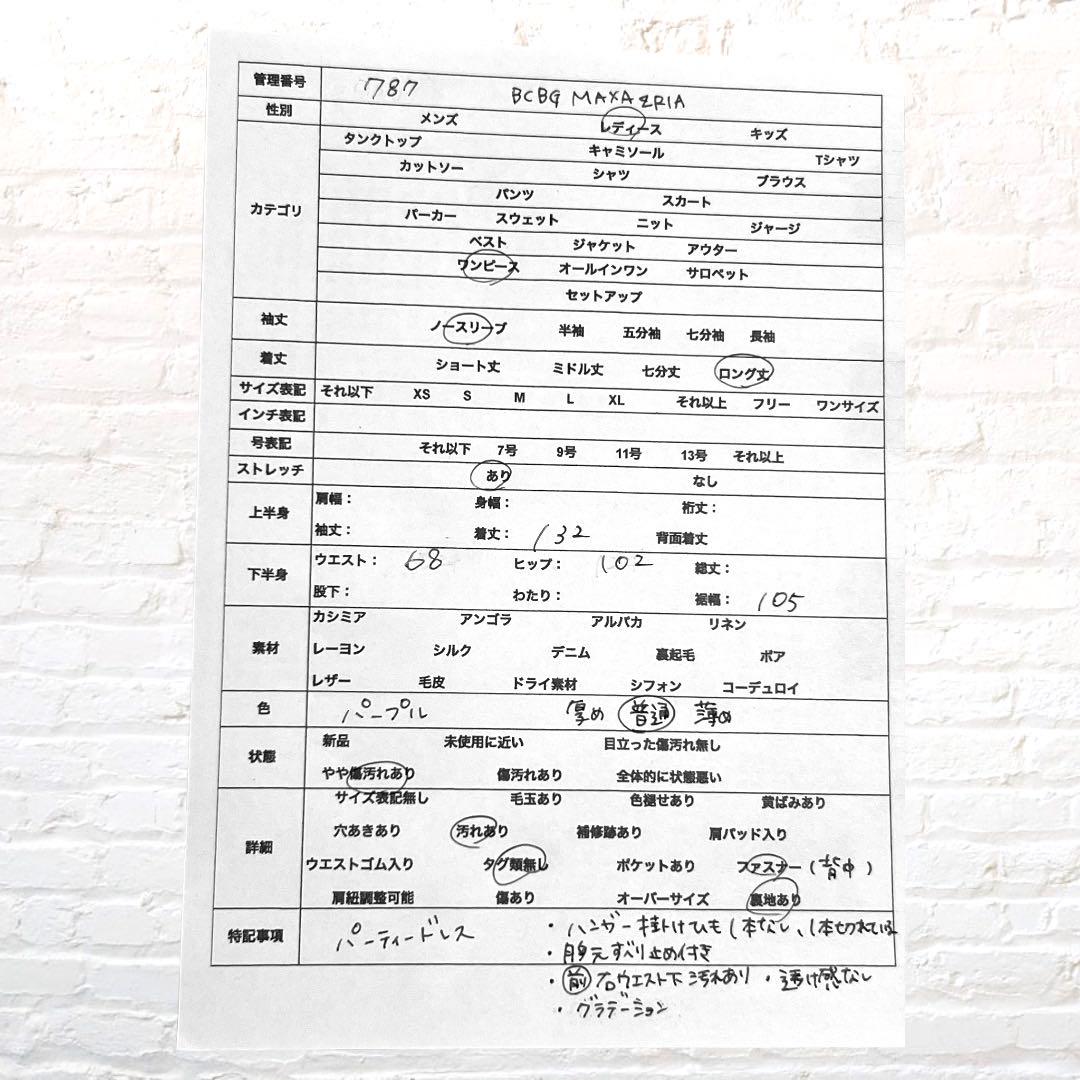 管理番号 787 BCBG MAXAZRIA
性別 メンズ レディース キッズ
カテゴリ
タンクトップ キャミソール Tシャツ
カットソー シャツ ブラウス
パンツ スカート
パーカー スウェット ニット ジャージ
ベスト ジャケット アウター
ワンピース オールインワン サロペット
セットアップ
袖丈 ノースリーブ 半袖 五分袖 七分袖 長袖
着丈 ショート丈 ミドル丈 七分丈 ロング丈
サイズ表記 それ以下 XS S M L XL それ以上 フリー ワンサイズ
インチ表記
号表記 それ以下 7号 9号 11号 13号 それ以上
ストレッチ あり なし
上半身
肩幅： 身幅： 裄丈：
袖丈： 着丈： 132 背面着丈
下半身
ウエスト： 68 ヒップ： 102 総丈：
股下： わたり： 裾幅： 105
素材
カシミア アンゴラ アルパカ リネン
レーヨン シルク デニム 裏起毛 ボア
レザー 毛皮 ドライ素材 シフォン コーデュロイ
色 パープル 厚め 普通 薄め
状態
新品 未使用に近い 目立った傷汚れ無し
やや傷汚れあり 傷汚れあり 全体的に状態悪い
詳細
サイズ表記無し 毛玉あり 色褪せあり 黄ばみあり
穴あきあり 汚れあり 補修跡あり 肩パッド入り
ウエストゴム入り タグ類無し ポケットあり ファスナー(背中)
肩紐調整可能 傷あり オーバーサイズ 裏地あり
特記事項 パーティードレス
・ハンガー掛けひも1本なし、1本切れている
・胸元すべり止め付き
・前 右ウエスト下汚れあり ・透け感なし
・グラデーション